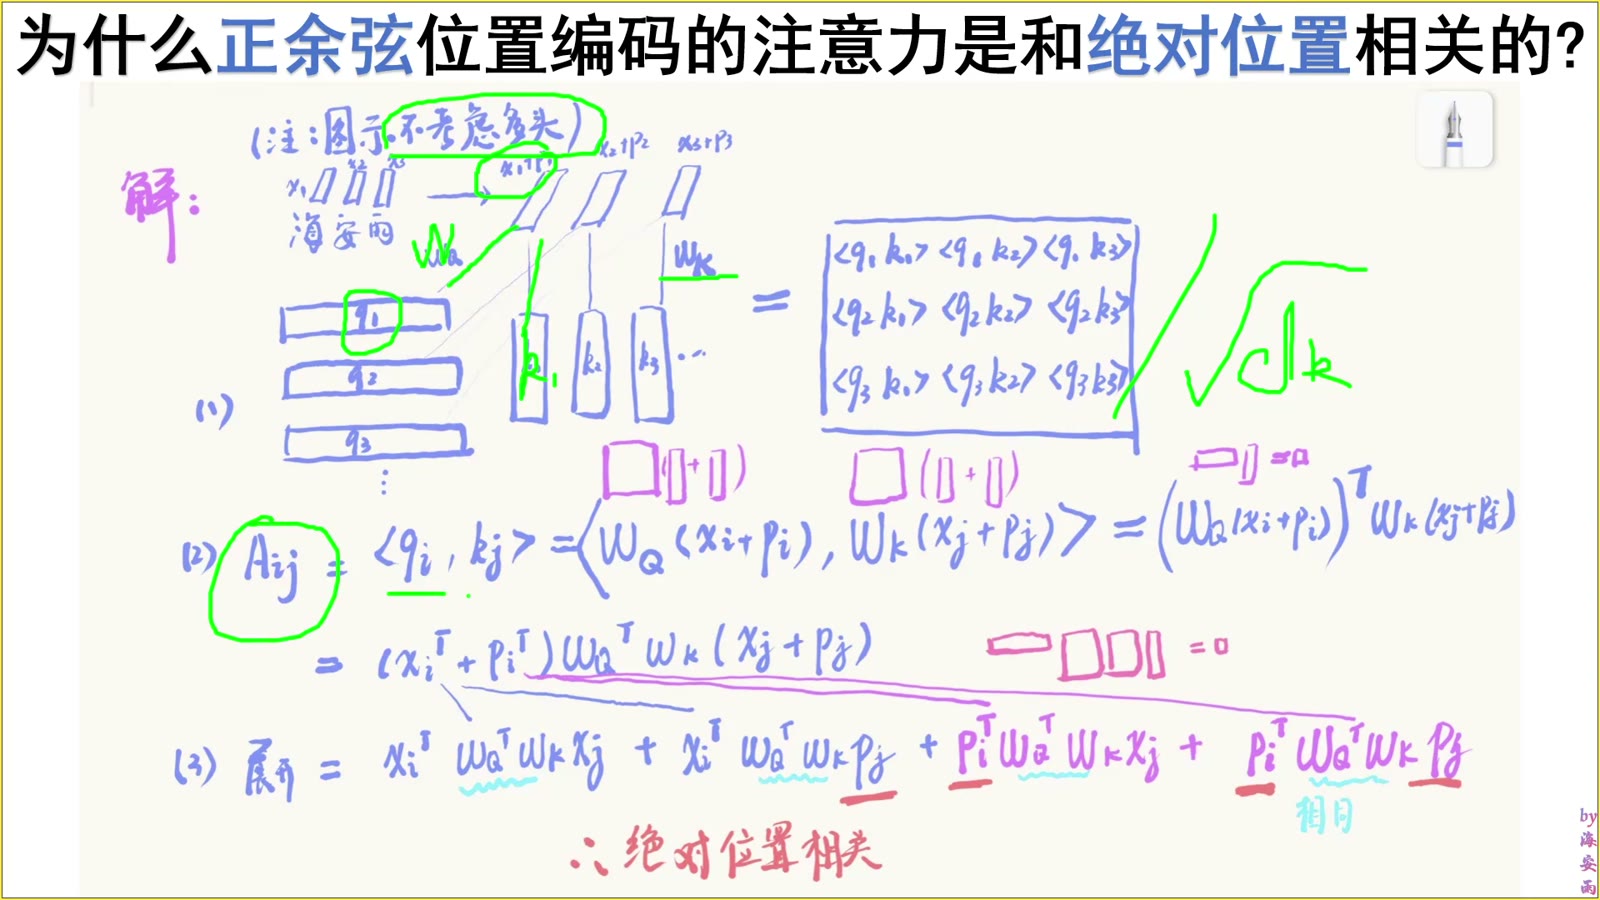 为什么正余弦位置编码的注意力是和绝对位置相关的?
(注:图示不考虑多头)
解:
x₁ x₂ x₃
x₁+p₁ x₂+p₂ x₃+p₃
海安雨
W_Q W_K
(1)
q₁
q₂
q₃
⋮
k₁ k₂ k₃ ...
=
<q₁k₁> <q₁k₂> <q₁k₃>
<q₂k₁> <q₂k₂> <q₂k₃>
<q₃k₁> <q₃k₂> <q₃k₃>
/ √dk
(2) Aij = <qi, kj> = <W_Q(xi+pi), W_K(xj+pj)> = (W_Q(xi+pi))ᵀ W_K(xj+pj)
= (xiᵀ+piᵀ)W_QᵀW_K(xj+pj)
(3) 展开 = xiᵀW_QᵀW_Kxj + xiᵀW_QᵀW_Kpj + piᵀW_QᵀW_Kxj + piᵀW_QᵀW_Kpj
∴ 绝对位置相关
by
海
安
雨